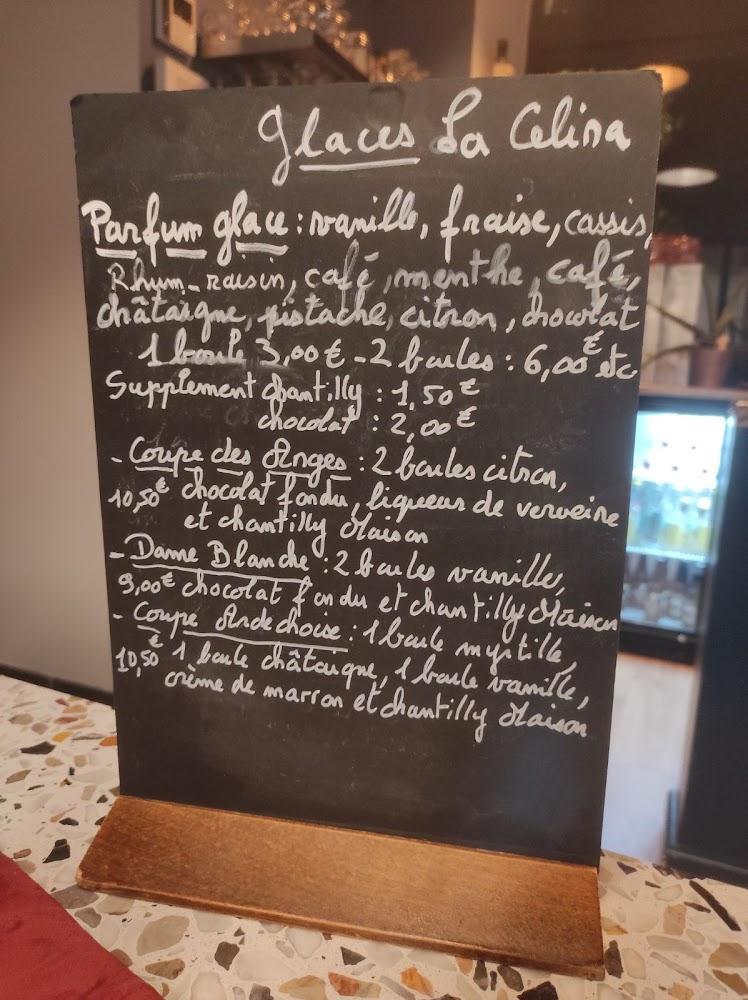 Glaces La Celina
Parfum glace : vanille, fraise, cassis,
Rhum-raisin, café, menthe, café,
châtaigne, pistache, citron, chocolat
1 boule 3,00€ - 2 boules : 6,00€ etc
Supplément chantilly : 1,50€
chocolat : 2,00€
- Coupe des Anges : 2 boules citron,
10,50€ chocolat fondu, liqueur de verveine
et chantilly Maison
- Dame Blanche : 2 boules vanille,
9,00€ chocolat fondu et chantilly Maison
- Coupe Ardechoise : 1 boule myrtille,
10,50€ 1 boule châtaigne, 1 boule vanille,
crème de marron et chantilly Maison